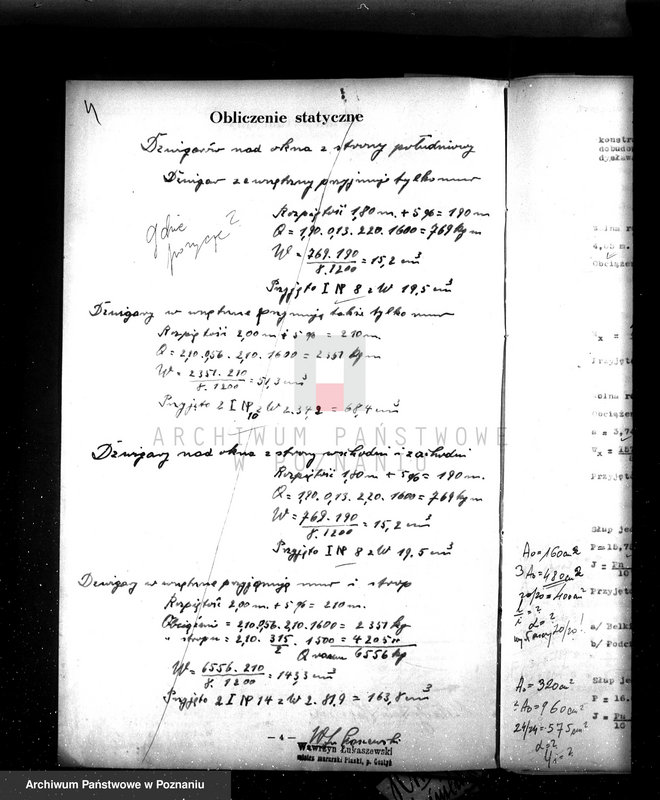 4
Obliczenie statyczne
Dźwigarów nad okna z strony południowy
Dźwigar zewnętrzny przyjmuje tylko mur
Rozpiętość 1,80 m. + 5% = 190 m
Q = 1,90. 0,13. 2,20. 1600 = 769 kg m
W = 769. 190 / 8. 1200 = 15,2 cm³
Przyjęto I № 8 z W 19,5 cm³
gdzie pozycje?
Dźwigary wewnętrzne przyjmują także tylko mur
Rozpiętość 2,00 m + 5% = 210 m
Q = 2,10. 0,56. 2,10. 1600 = 2351 kg m
W = 2351. 210 / 8. 1200 = 51,3 cm³
Przyjęto 2 I № 10 z W 2. 34,2 = 68,4 cm³
ARCHIWUM PAŃSTWOWE
W POZNANIU
Dźwigary nad okna z strony wschodni i zachodni
Rozpiętość 1,80 m + 5% = 190 m.
Q = 1,90. 0,13. 2,20. 1600 = 769 kg m
W = 769. 190 / 8. 1200 = 15,2 cm³
Przyjęto I № 8 z W 19,5 cm³
Dźwigary wewnętrzne przyjmują mur i strop
Rozpiętość 2,00 m. + 5% = 210 m.
Obciążenie = 2,10. 0,56. 2,10. 1600 = 2351 kg
" stropu = 2,10. 315/2 . 1500 = 4205 "
Q razem 6556 kg
W = 6556. 210 / 8. 1200 = 143,3 cm³
Przyjęto 2 I № 14 z W 2. 81,9 = 163,8 cm³
— 4 —
Wawrzyn Łukaszewski
mistrz murarski Piaski, p. Gostyń
konstr
dobudo
dysław
4,05 m.
Obciążen
Przyjęt
Obciążen
Przyjęt
Słup je
P = 15,7
J =
10
Przyjęt
a/ Belki
b/ Podci
Słup je
P = 16.
J =
10
A₀ = 160 cm²
3 A₀ = 480 cm²
20/20 = 400 cm²
A₀ = 320 cm²
2 A₀ = 960 cm²
24/24 = 575 cm²
Archiwum Państwowe w Poznaniu